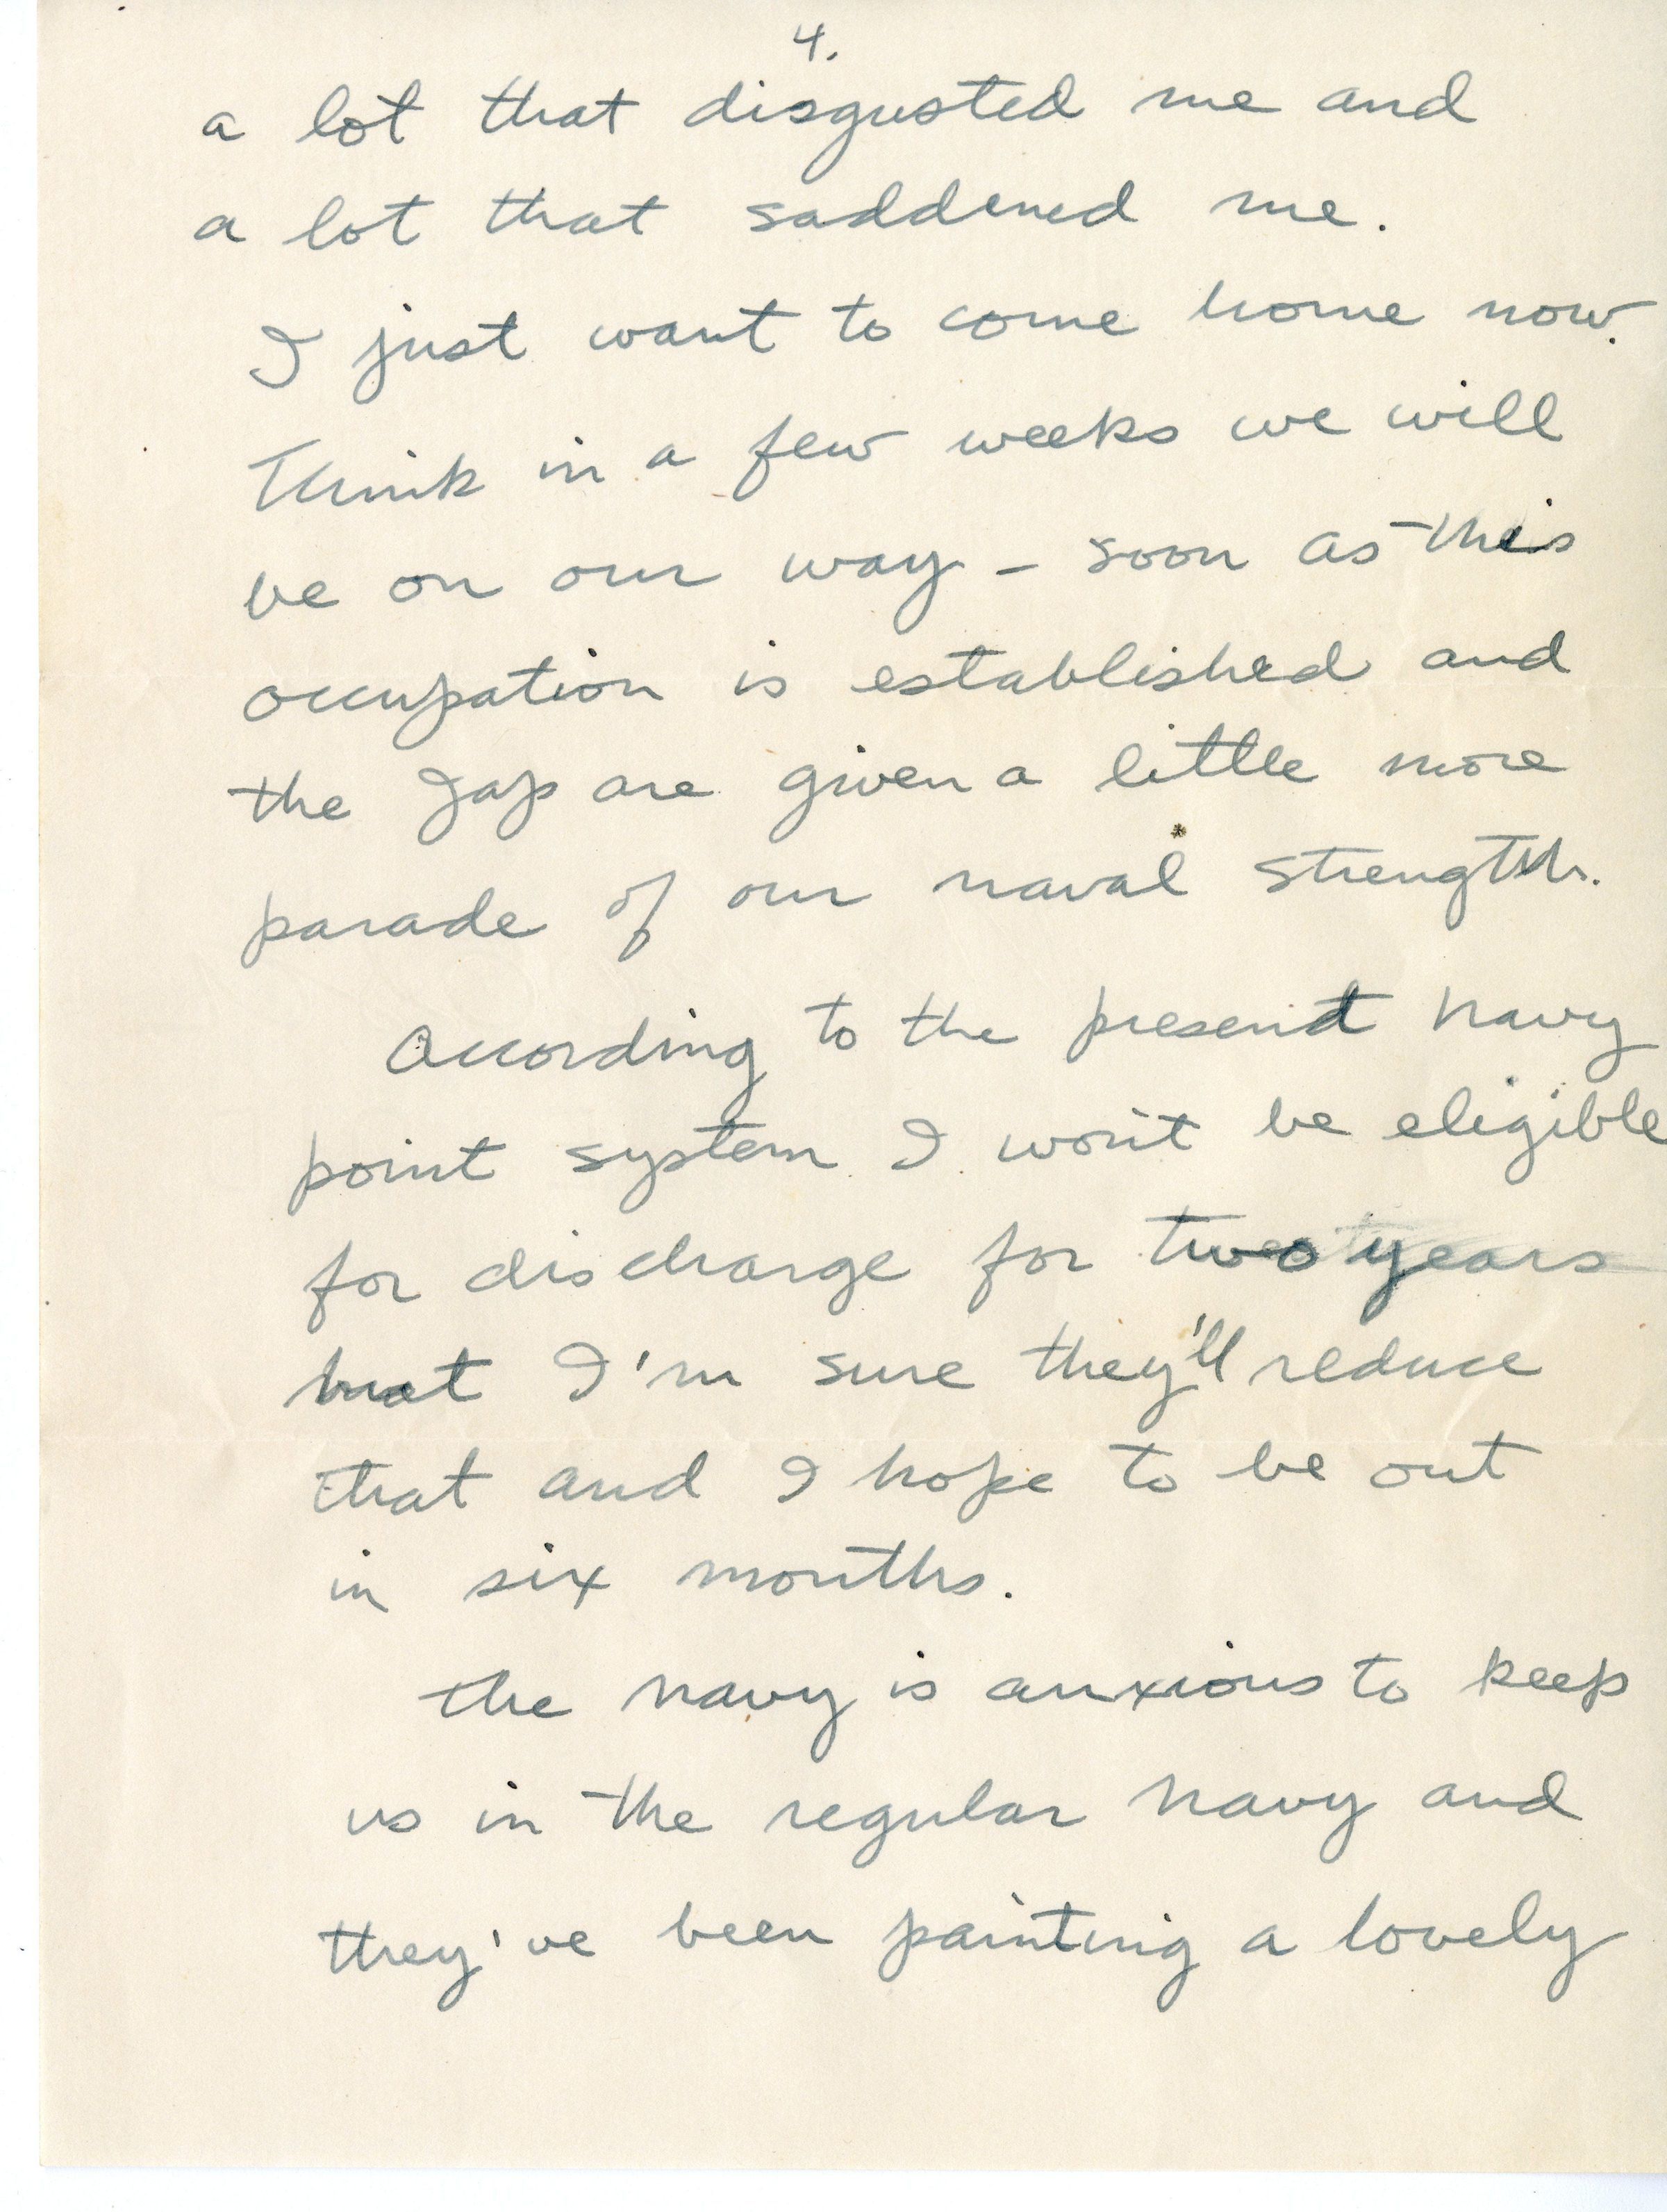 4.
a lot that disgusted me and
a lot that saddened me.
I just want to come home now.
Think in a few weeks we will
be on our way - soon as this
occupation is established and
the Jap are given a little more
parade of our naval strength.
According to the present navy
point system I won't be eligible
for discharge for two years
but I'm sure they'll reduce
that and I hope to be out
in six months.
The navy is anxious to keep
us in the regular navy and
they've been painting a lovely